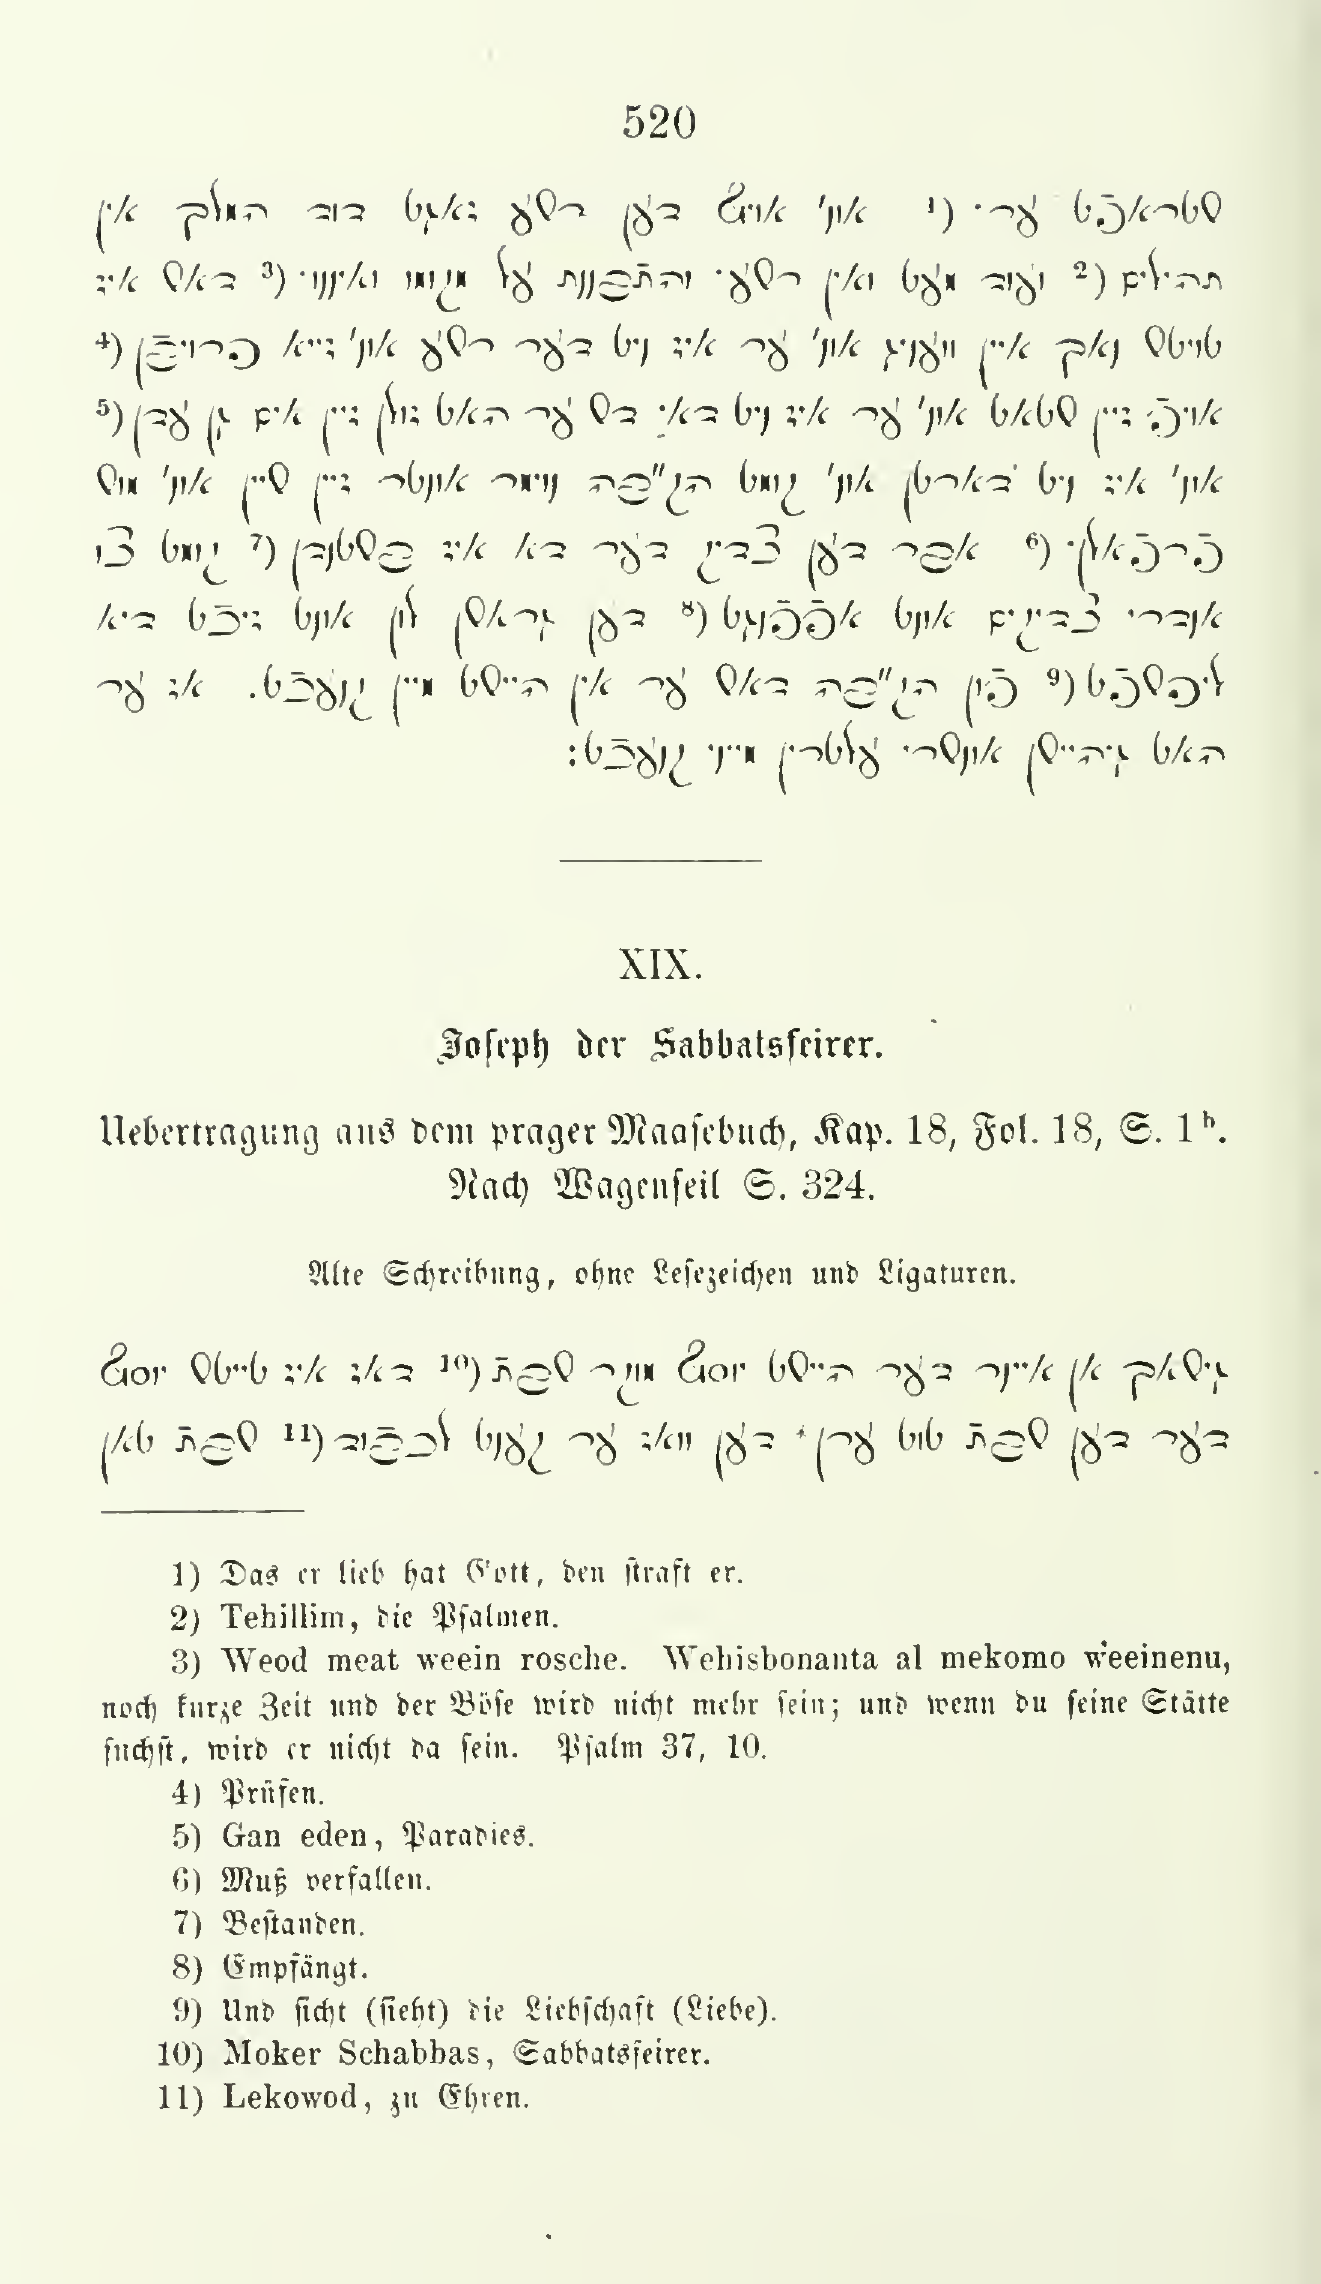 520
שטראפֿט ער · (1 אונ' אויף דען רשע זאגט דוד המלך אין
תהילים (2 ועוד מעט ואין רשע · והתבֿננת על מקומו ואיננו · (3 דאש איז
טוטש נאך איין וועניג אונ' ער איז ניט דער רשע אונ' זייא פרויבֿן (4
אויף זיין שטאט אונ' ער איז ניט דאי דש ער האט זולן זיין אים גן עדן (5
אונ' איז ניט דארטן אונ' קומט הק"בה נומר אונטר זיין שין אונ' מוש
פֿרפֿאלן · (6 אבר דען צדיק דער דא איז בשטנדן (7 קומט צו
אנדרי צדיקים אונט אפֿפֿנגט (8 דען גראשן לון אונט זיכֿט דיא
ליבשפֿט (9 פֿון הק"בה דאש ער אין היישט מיין קנעכֿט. אז ער
האט גיהיישן אונשרי עלטרין מייני קנעכֿט:
XIX.
Joseph der Sabbatsfeirer.
Uebertragung aus dem prager Maasebuch, Kap. 18, Fol. 18, S. 1b.
Nach Wagenseil S. 324.
Alte Schreibung, ohne Lesezeichen und Ligaturen.
גישאך אן איינר דער היישט יוסף מוקר שבת (10 דאז איז טייטש יוסף
דער דען שבת טוט ערין · דען וואז ער קענט לכבֿוד (11 שבת טאן
1) Das er lieb hat Gott, den straft er.
2) Tehillim, die Psalmen.
3) Weod meat weein rosche. Wehisbonanta al mekomo weeinenu,
noch kurze Zeit und der Böse wird nicht mehr sein; und wenn du seine Stätte
suchst, wird er nicht da sein. Psalm 37, 10.
4) Prüfen.
5) Gan eden, Paradies.
6) Muß verfallen.
7) Bestanden.
8) Empfängt.
9) Und sicht (sieht) die Liebschaft (Liebe).
10) Moker Schabbas, Sabbatsfeirer.
11) Lekowod, zu Ehren.